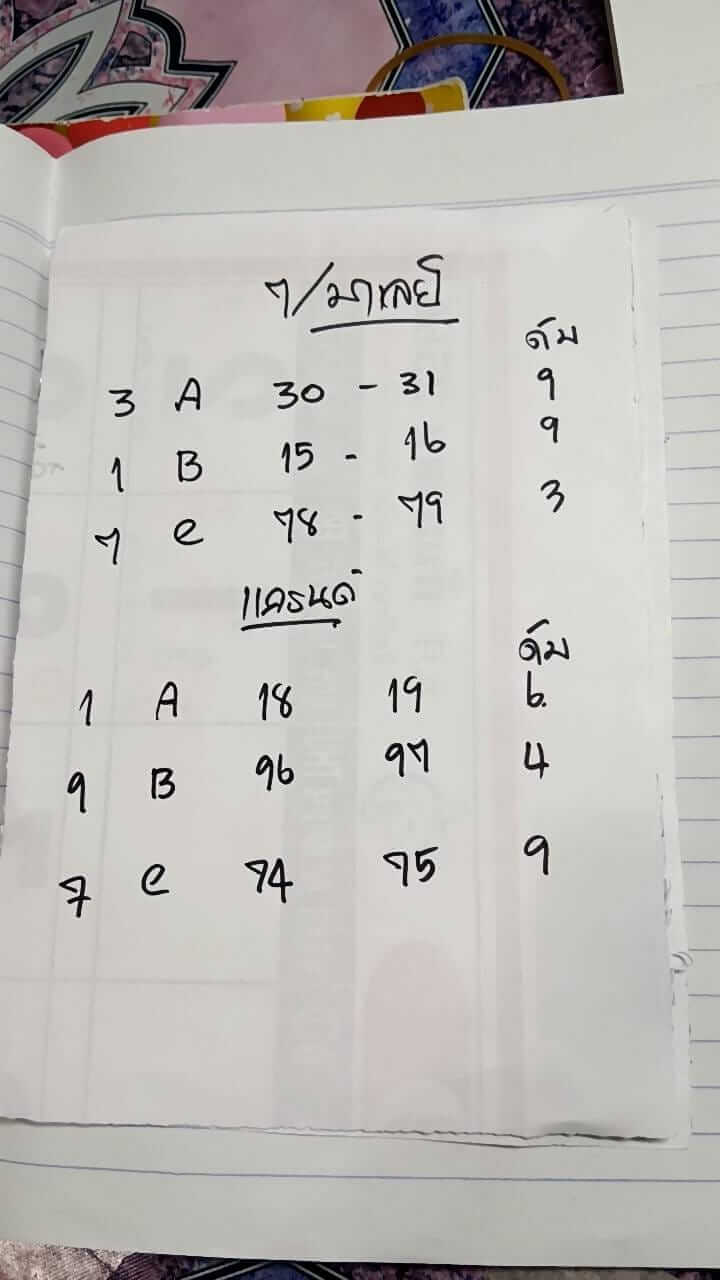 7/มาเลย์
ดับ
3 A 30 - 31 9
1 B 15 - 16 9
7 e 78 - 79 3
แครนด์
ดับ
1 A 18 19 6.
9 B 96 97 4
7 e 74 75 9